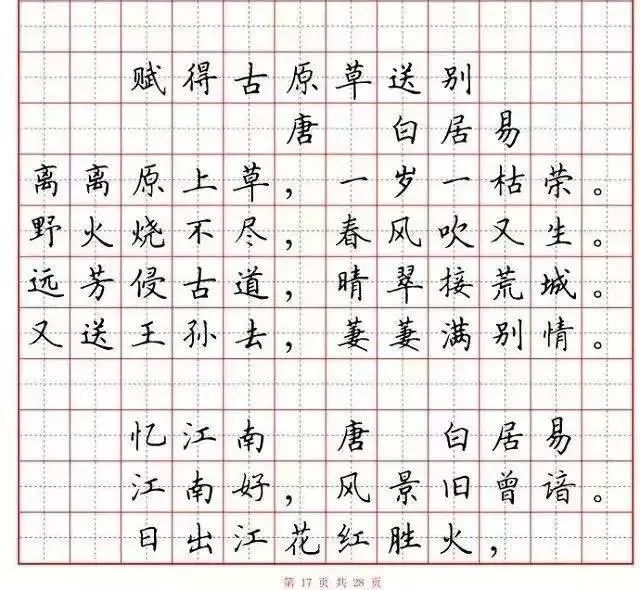 赋得古原草送别
唐 白居易
离离原上草，一岁一枯荣。
野火烧不尽，春风吹又生。
远芳侵古道，晴翠接荒城。
又送王孙去，萋萋满别情。
忆江南 唐 白居易
江南好，风景旧曾谙。
日出江花红胜火，
第 17 页 共 28 页